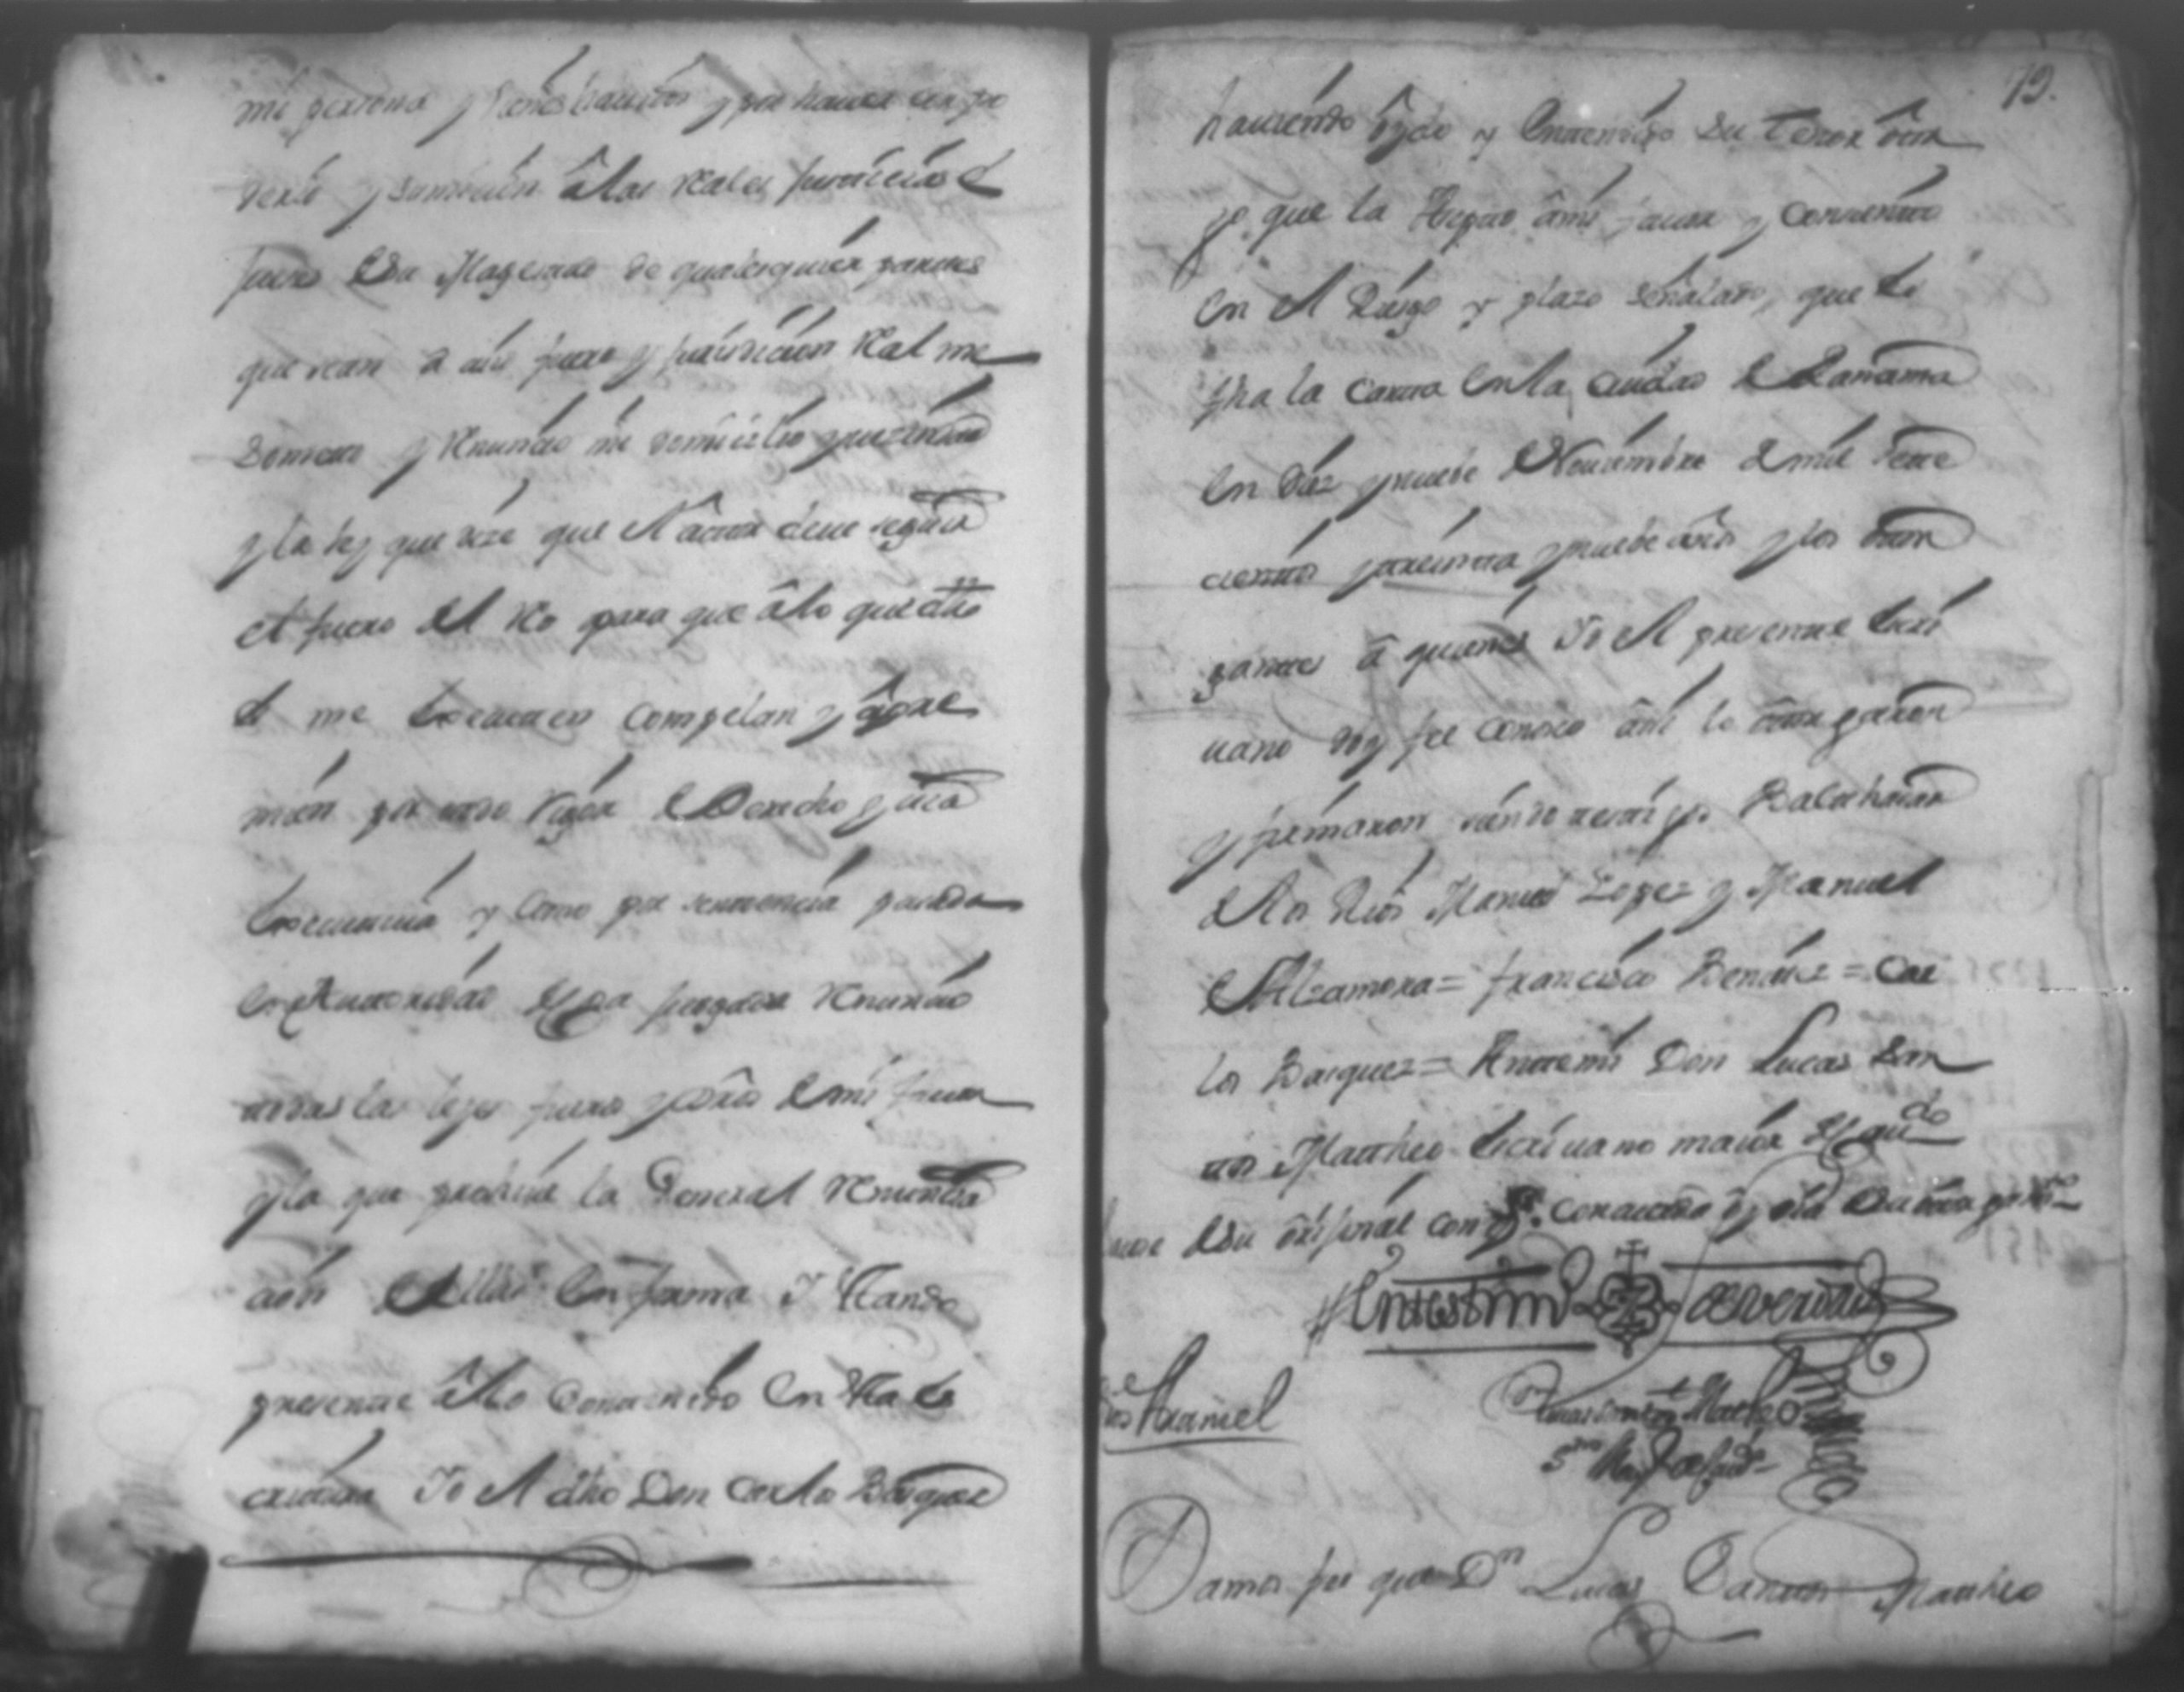 mi persona y vienes hauidos y por hauer doy po
derio y sumicion â las Reales Justicias &
Jueces de Su Magestad de qualesquier partes
que sean a cuio fuero y Jurisdicion Real me
Someto y Renuncio mi domicilio y vezindad
y la ley que dize que el actor deue seguir
el fuero del Reo para que â lo que dho
es me executen compelan y apre
mien por todo rigor de Derecho y via
executiua y como por sentencia pasada
en autoridad de cosa juzgada Renuncio
todas las leyes fueros y dros de mi fauor
y la que prohiue la General Renuncia
cion de ellas en forma Y estando
presente â lo contenido en esta es
criptura Yo el dho Don Carlos Basquez
79.
hauiendo oydo y entendido su tenor otor
go que la acepto a mi fauor y contento
en el Riesgo y plazo señalado, que es
fha la carta en la ciudad de Panama
en diez y nueve de Nouiembre de mil sete
cientos y treinta y nueve años y los otor
gantes â quienes Yo el presente escri
uano doy fee conosco asi lo otorgaron
y firmaron siendo testigos Balthasar
de los Rios Manuel Lopez y Manuel
de Alzamora = Francisco Benitez = Car
los Basquez = Ante mi Don Lucas San
tos Matheo escriuano maior de Gouno
de su original con qn concuerda
En testimo de verdad
Lucas Santos Matheo
Damos fee que Dn Lucas Santos Matheo